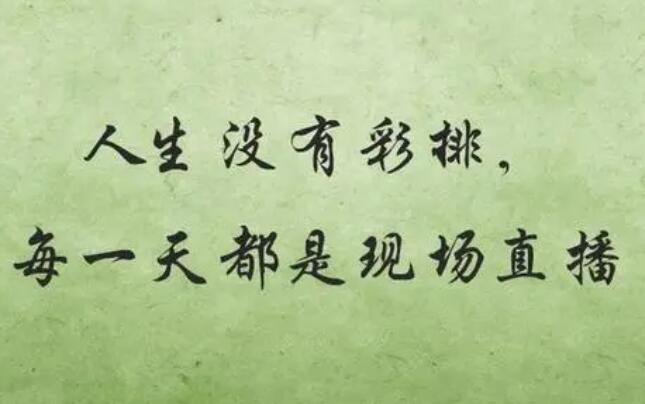 人生没有彩排，
每一天都是现场直播